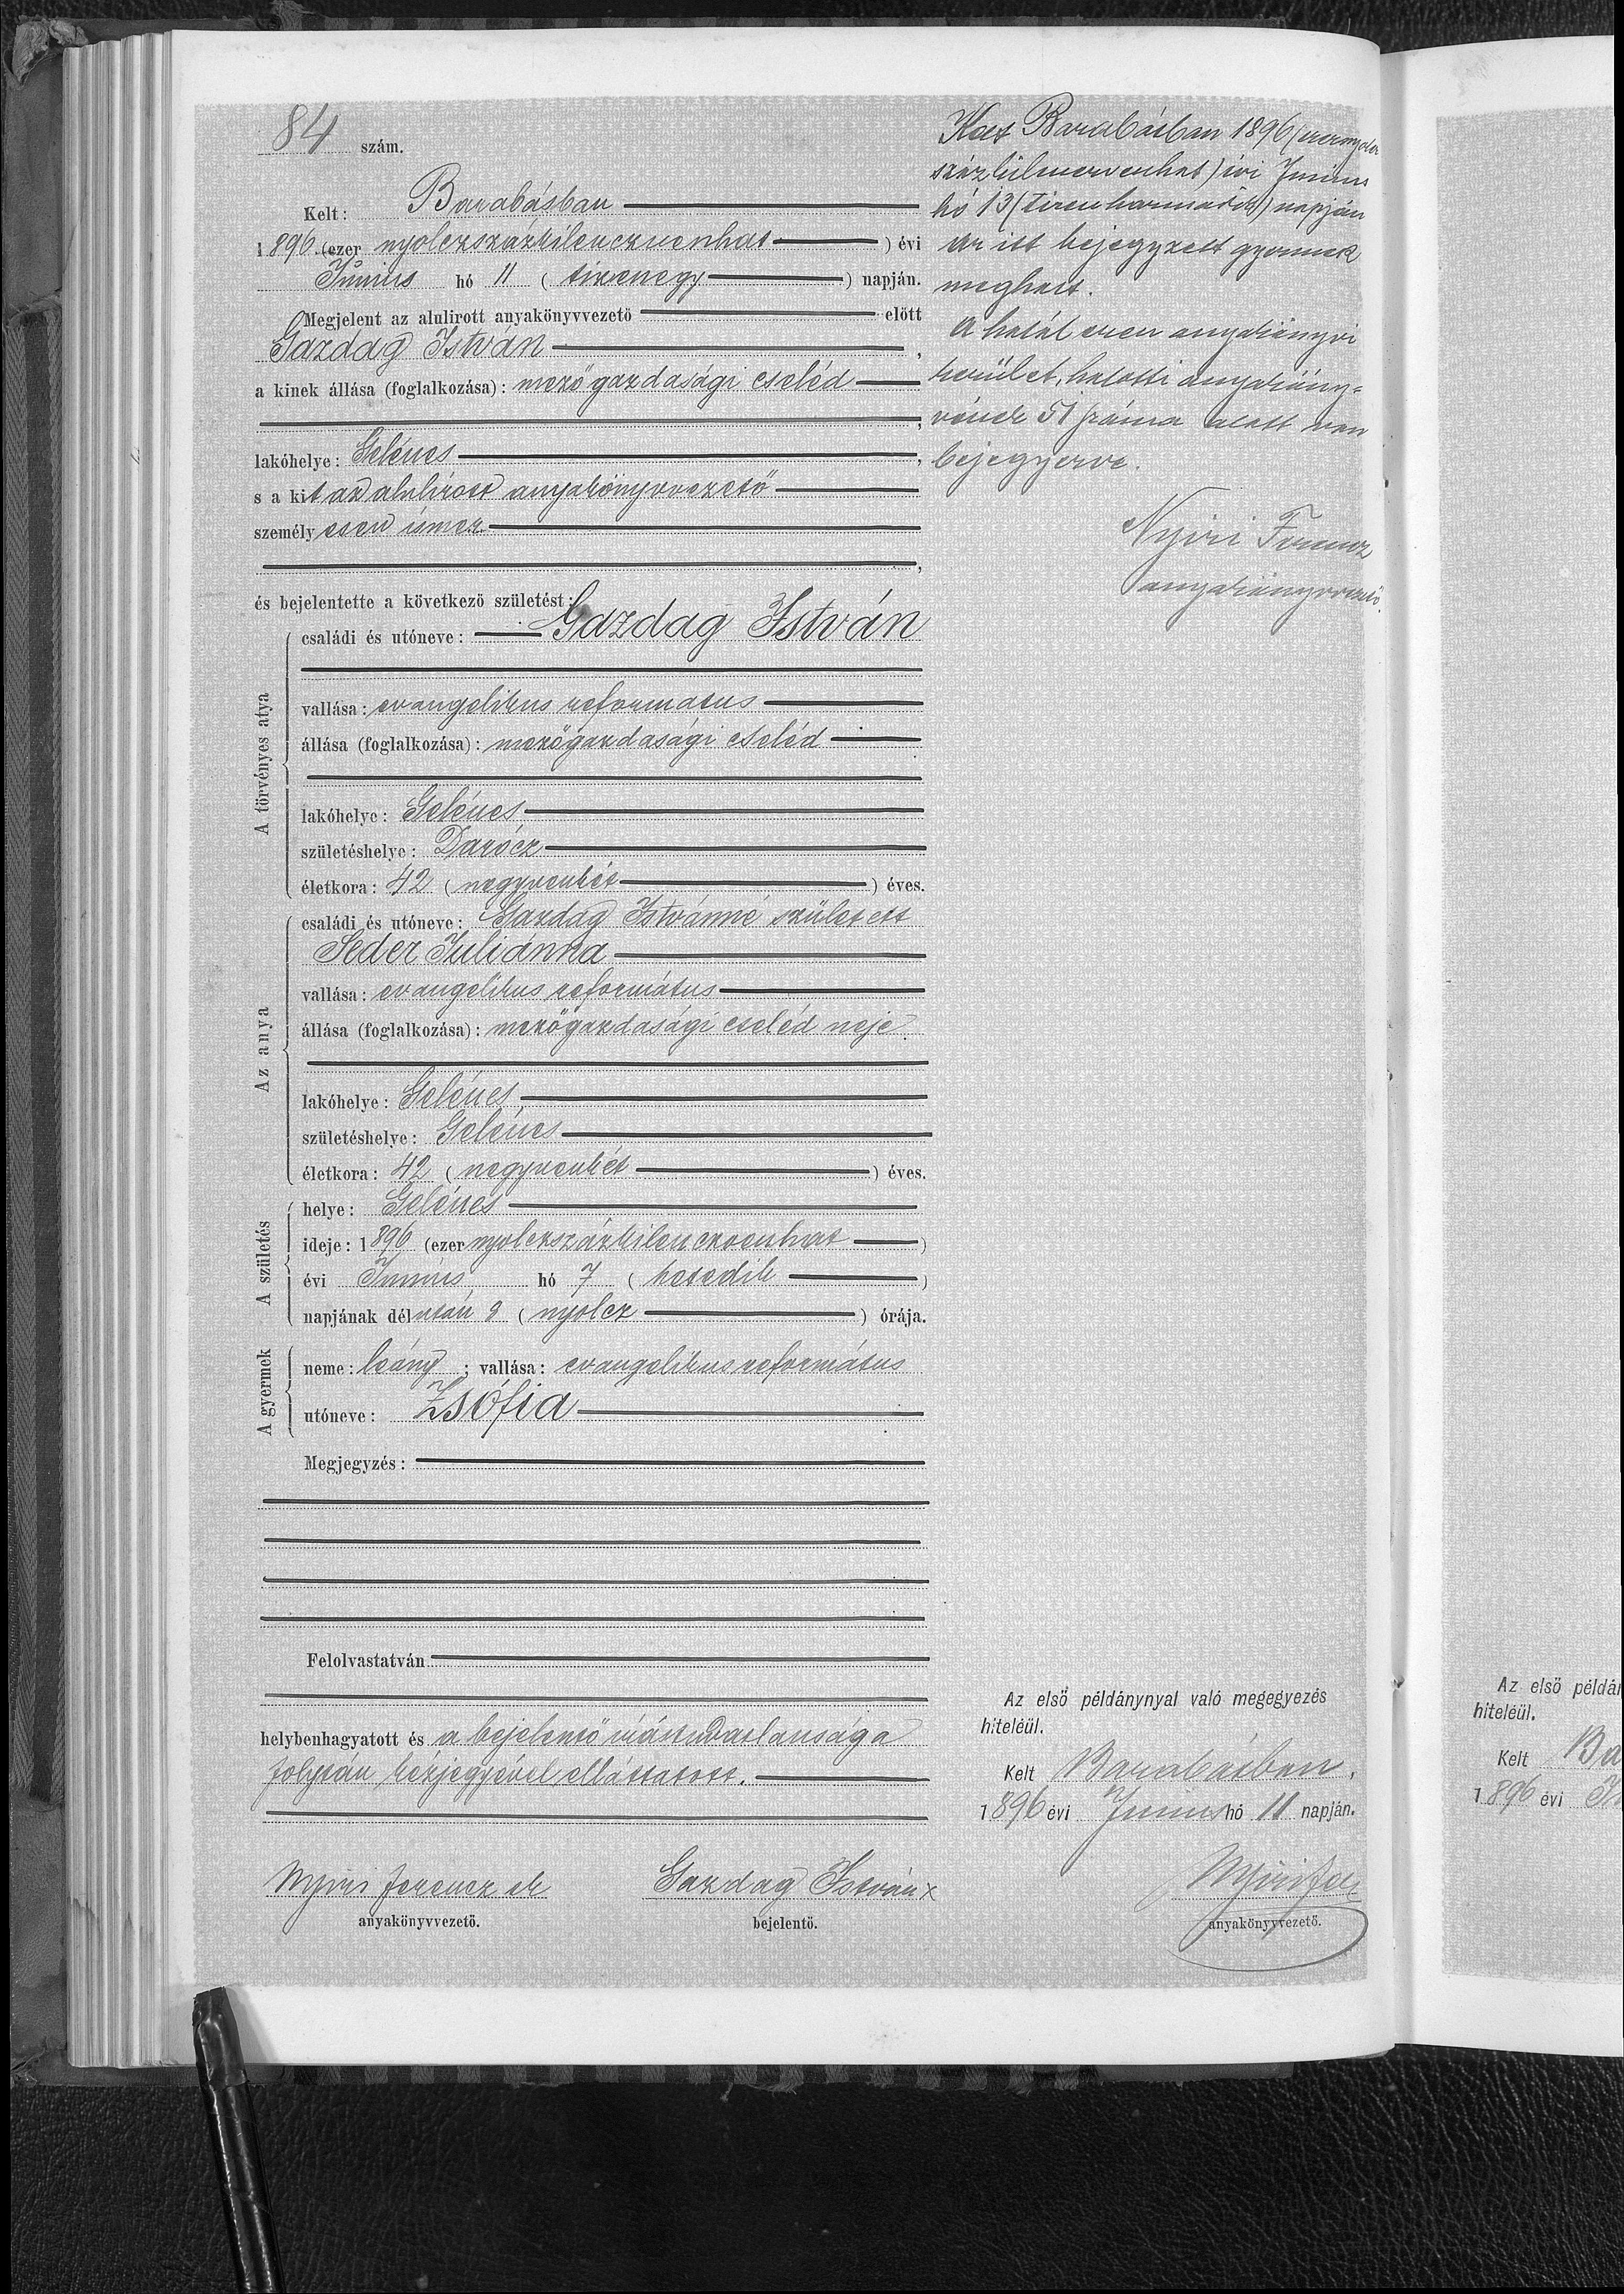 84 szám.
Kelt: Barabásban
1896 (ezer nyolczszázkilenczvenhat) évi
Június hó 11 (tizenegy) napján.
Megjelent az alulirott anyakönyvvezető előtt
Gazdag István,
a kinek állása (foglalkozása): mezőgazdasági cseléd
,
lakóhelye: Gelénes,
s a kit az alulírott anyakönyvvezető
személyesen ismer
,
és bejelentette a következő születést:
A törvényes atya
családi és utóneve: Gazdag István
vallása: evangelikus reformatus
állása (foglalkozása): mezőgazdasági cseléd
lakóhelye: Gelénes
születéshelye: Darócz
életkora: 42 (negyvenkét) éves.
Az anya
családi és utóneve: Gazdag Istvánné született
Séder Juliánna
vallása: evangelikus református
állása (foglalkozása): mezőgazdasági cseléd neje
lakóhelye: Gelénes
születéshelye: Gelénes
életkora: 42 (negyvenkét) éves.
A születés
helye: Gelénes
ideje: 1896 (ezer nyolczszázkilenczvenhat)
évi Junius hó 7 (hetedik)
napjának délután 8 (nyolcz) órája.
A gyermek
neme: leány; vallása: evangelikus református
utóneve: Zsófia
Megjegyzés:
Felolvastatván
helybenhagyatott és a bejelentő írástudatlansága
folytán kézjegyével elláttatott.
Nyiri Ferencz
anyakönyvvezető.
Gazdag István x
bejelentő.
Kelt Barabásban 1896 (ezernyolcz
százkilenczvenhat) évi Junius
hó 13 (tizenharmadik) napján
Az itt bejegyzett gyermek
meghalt.
A halál ezen anyakönyvi
kerület, halotti anyaköny-
vének 51 száma alatt van
bejegyezve.
Nyiri Ferencz
anyakönyvvezető.
Az első példánynyal való megegyezés
hiteléül.
Kelt Barabásban,
1896 évi Junius hó 11 napján.
Nyiri Fer
anyakönyvvezető.
Az első példá
hiteléül.
Kelt Ba
1896 évi